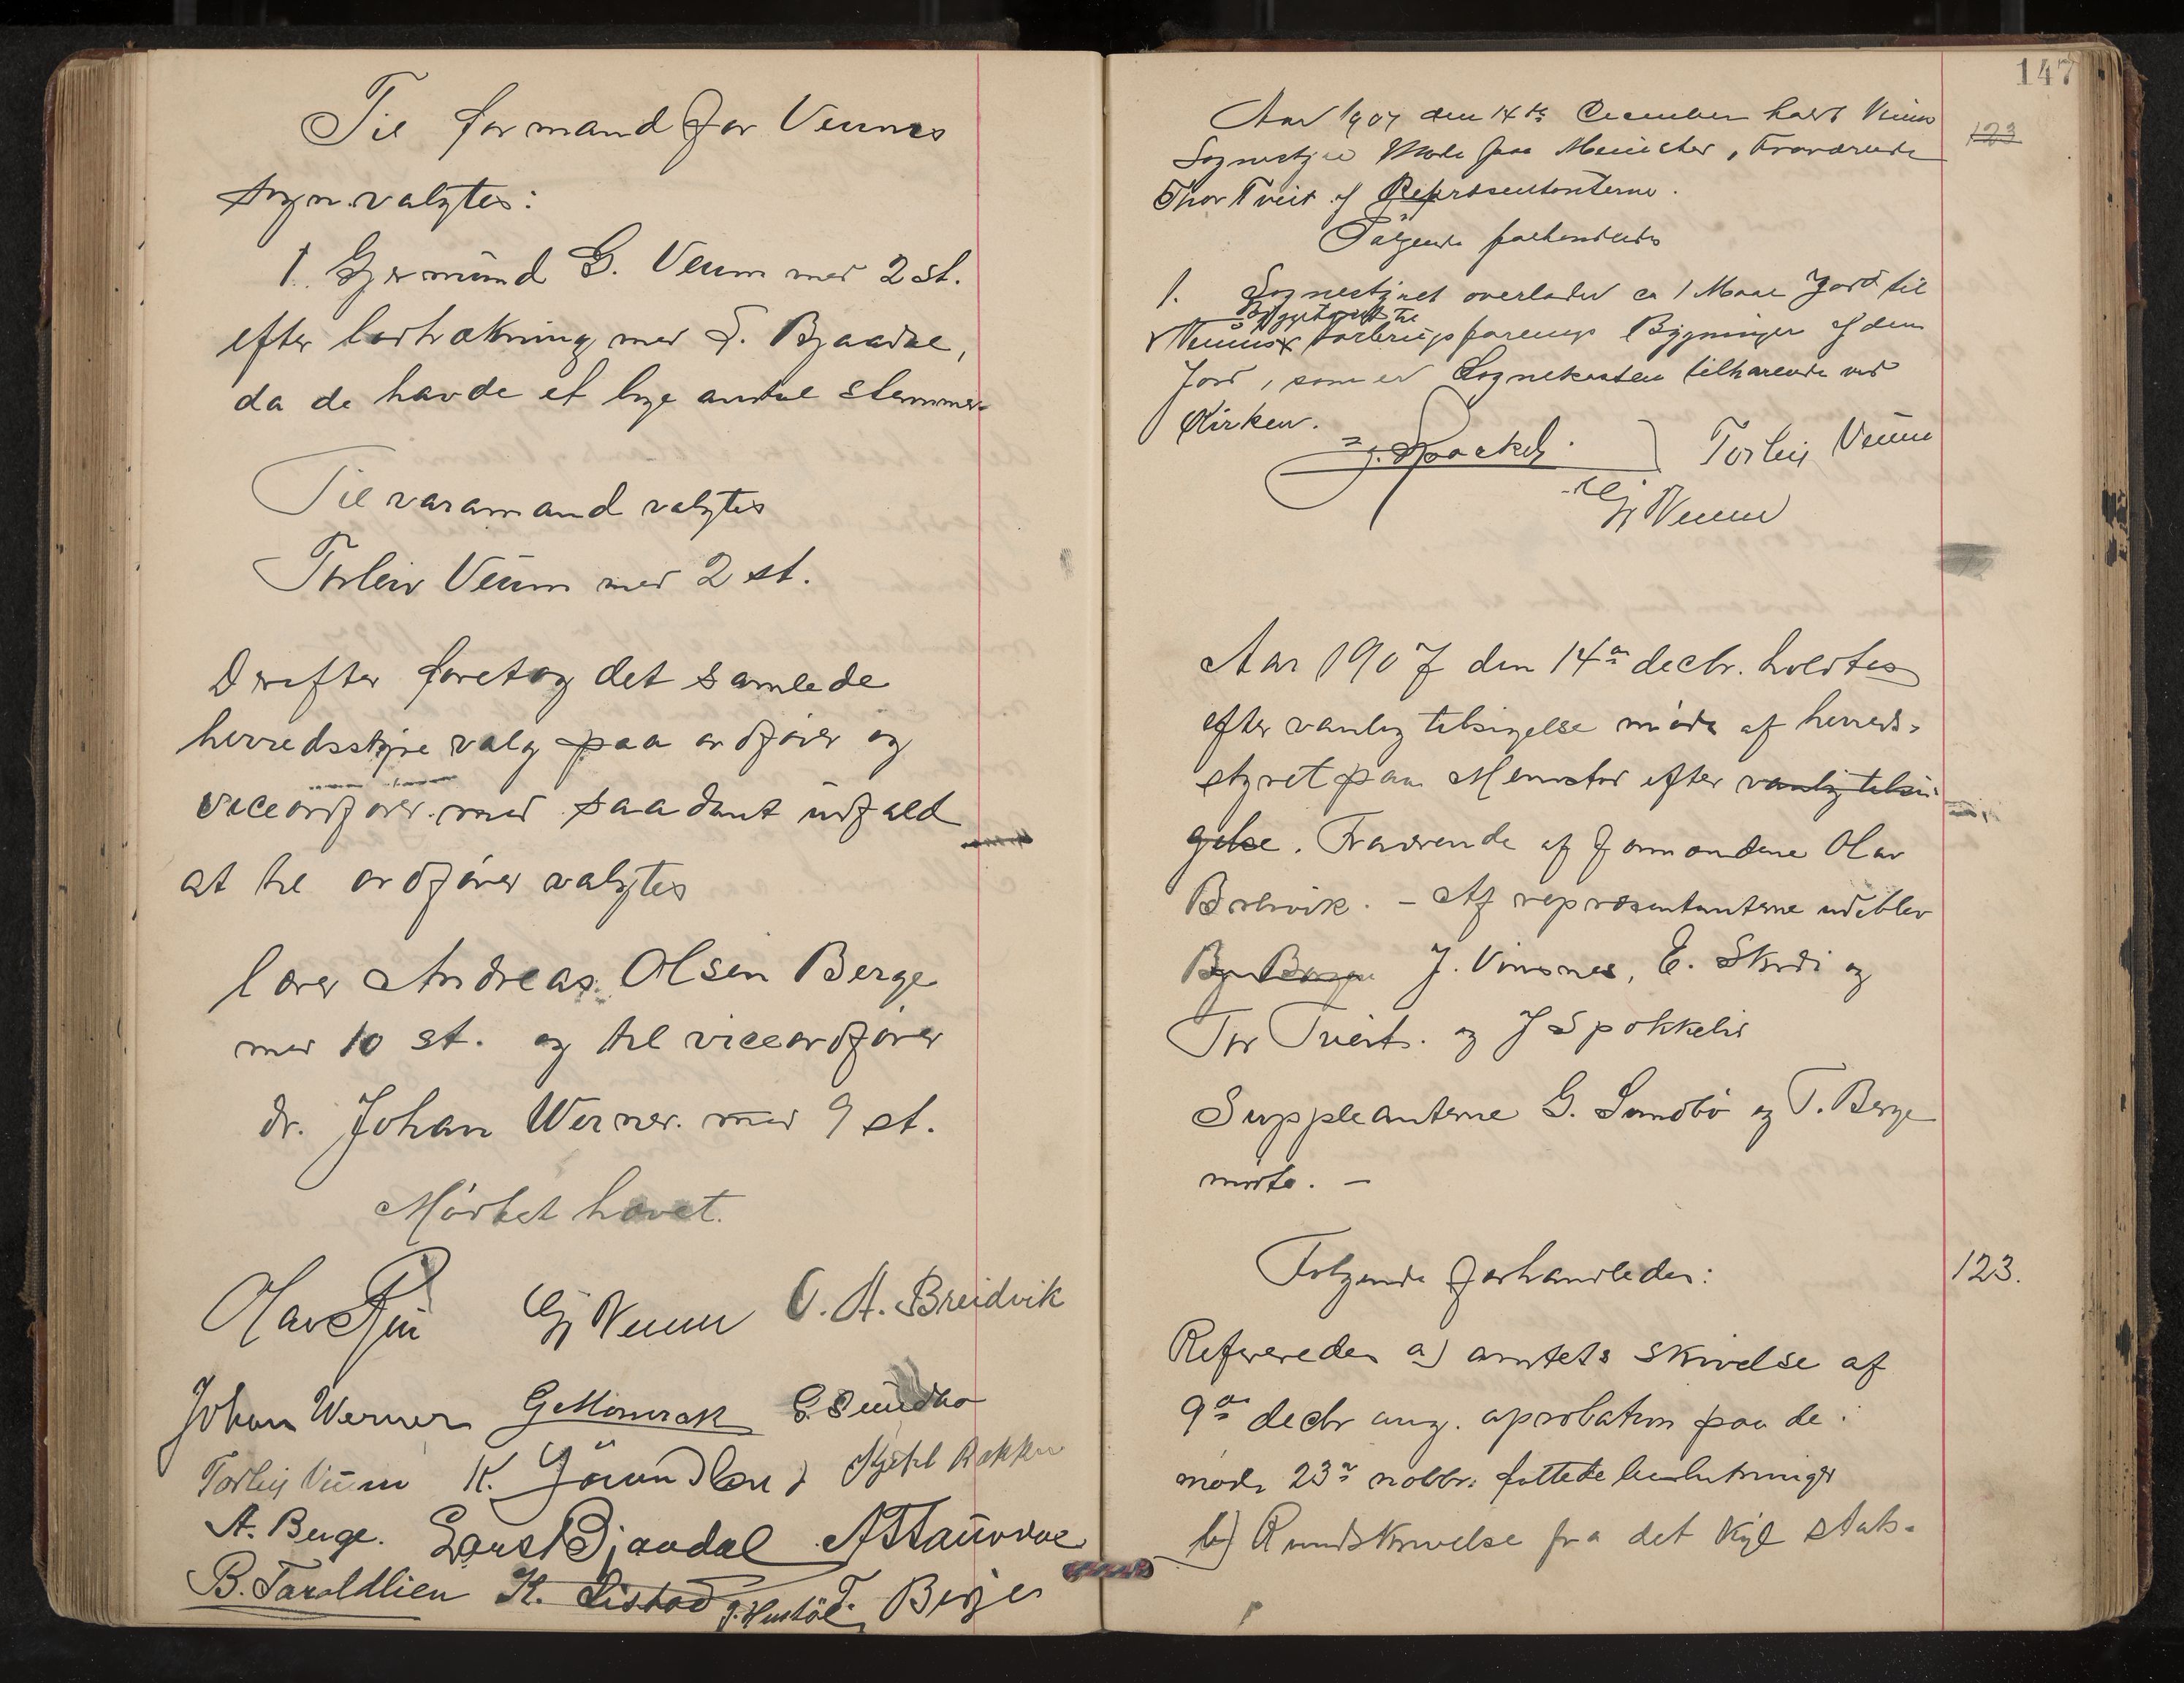 Til formand for Veums
sogn valgtes:
1. Gjermund G. Veum med 2 st.
efter lodtrækning med S. Bjaadal,
da de havde et lige antal stemmer.
Til varamand valgtes
Torleiv Veum med 2 st.
Derefter foretog det samlede
herredsstyre valg paa ordfører og
viceordfører med saadant udfald
at til ordfører valgtes
lærer Andreas Olsen Berge
med 10 st. og til viceordfører
dr. Johan Werner med 9 st.
Mødet hævet.
Olav Gj Veum O. A. Breidvik
Johan Werner G. Sundbø
Torleiv Veum K. Kjetil Rokke
A. Berge.
B. Taraldlien K. Listad T. Berge
147
Aar 1907 den 14de December holdt Veum
123
Sognestyre Møde paa Meinstad, Fraværende
Thor Tveit af Repræsentanterne.
Følgende forhandledes
1. Sognestyret overlader ca 1 Maal Jord til
Byggetomt til
Veums forenings Bygninger af den
Jord, som er Sognekassten tilhørende ved
Kirken.
Torleiv Veum
Gj Veum
Aar 1907 den 14de decbr. holdtes
efter vanlig tilsigelse møde af herreds-
styret paa efter vanlig tilsi-
gelse. Fraværende af formændene Olav
Breivik. – Af repræsentanterne udeblev
J. Vinsnes, E. Skrdi og
Tor Tveit. og J Spokkeli
Suppleanterne G. Sundbø og T. Berge
mødte. –
Følgende forhandledes:
123.
Refereredes a) amtets skrivelse af
9de decbr ang. aprobation paa de i
møde 23de novbr. fattede beslutninger
b) Rundskrivelse fra det kgl stats-